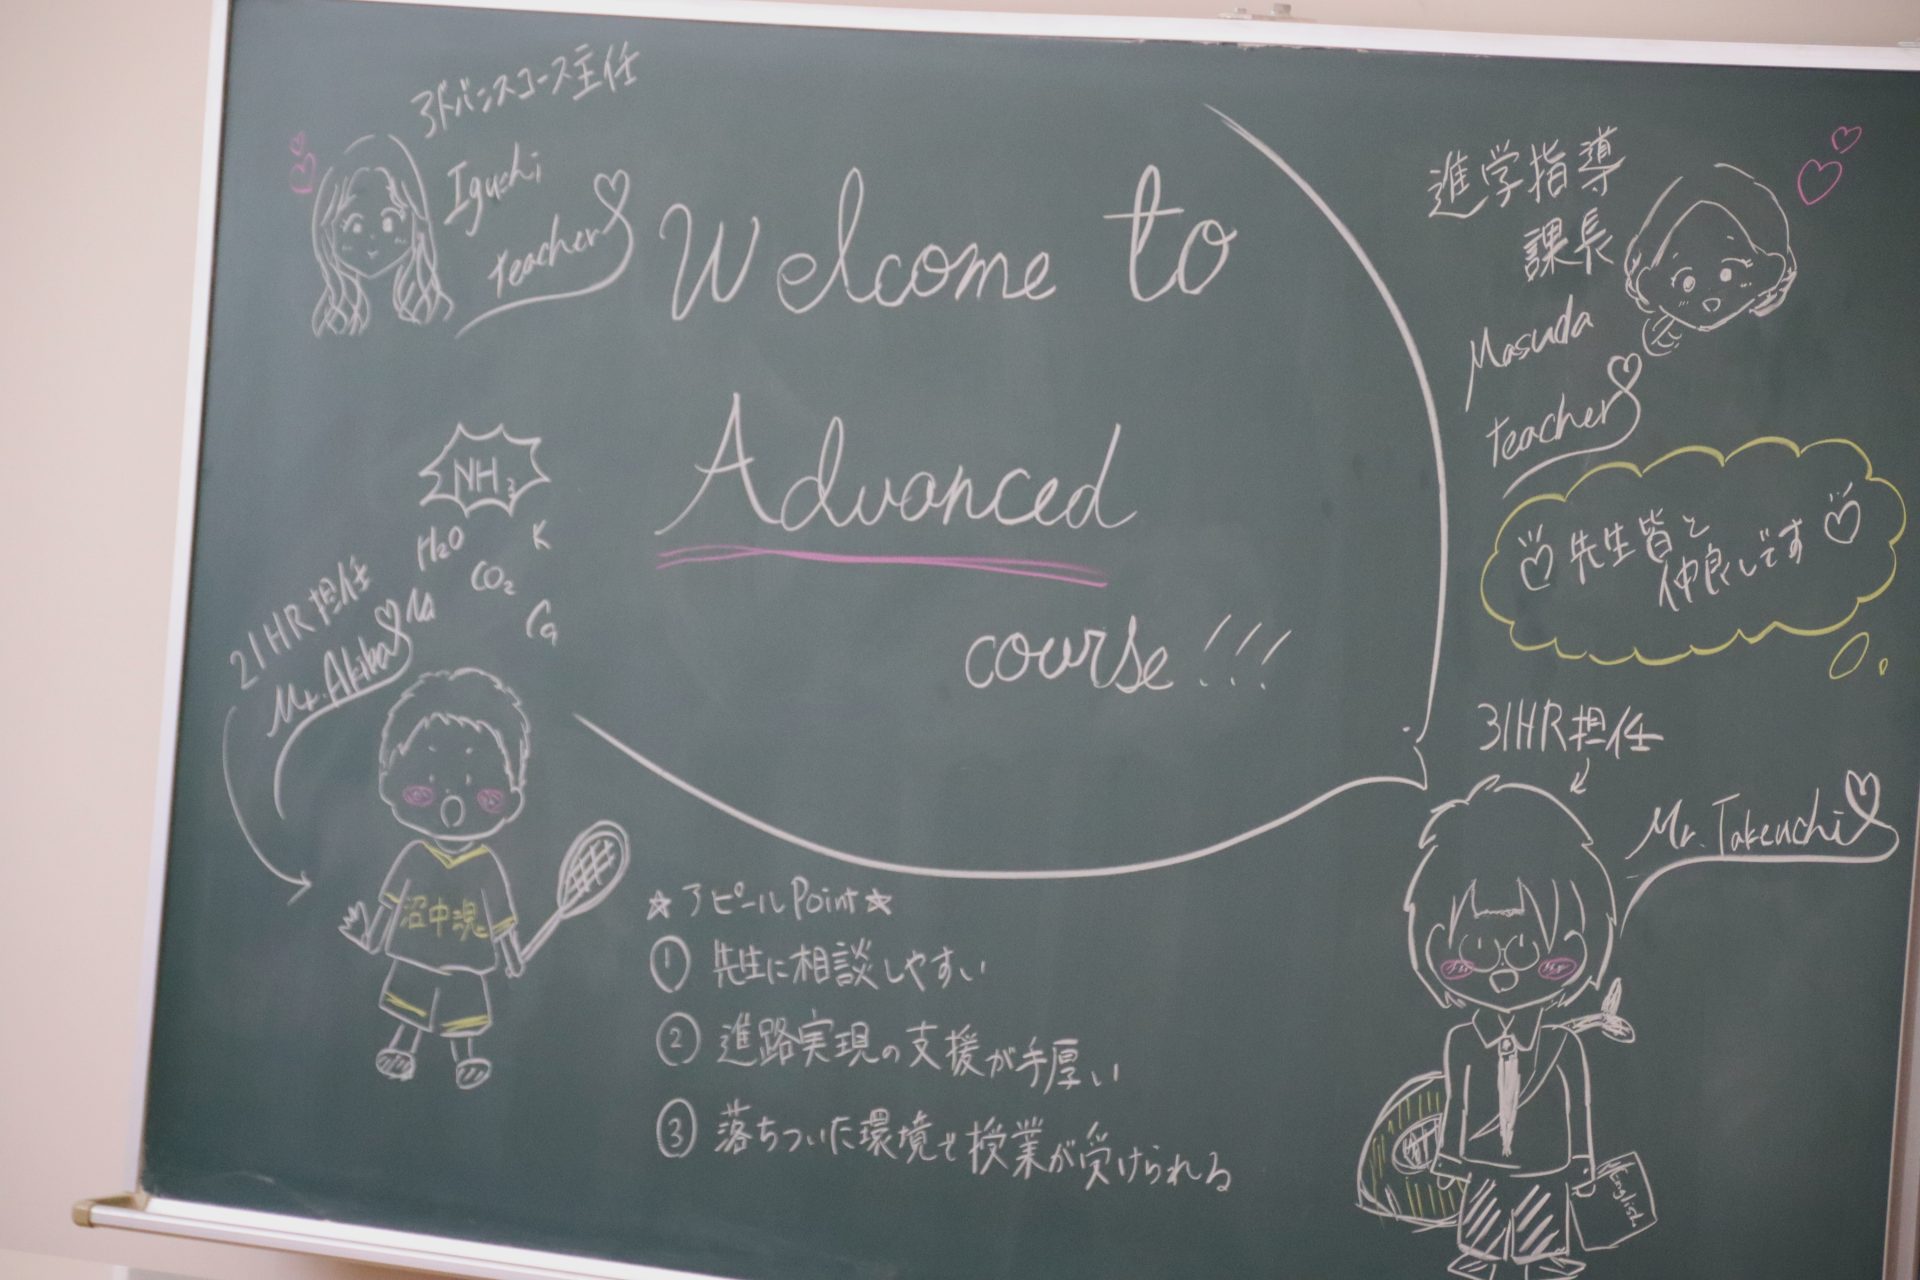 アドバンスコース主任
Iguchi
teacher
Welcome to
Advanced
course!!!
進学指導
課長
Masuda
teacher
先生皆と
仲良しです
NH3
H2O
K
CO2
Na
Ca
21HR担任
Mr. Akiba
沼中魂
31HR担任
Mr. Takeuchi
English
☆アピールPoint☆
① 先生に相談しやすい
② 進路実現の支援が手厚い
③ 落ちついた環境で授業が受けられる